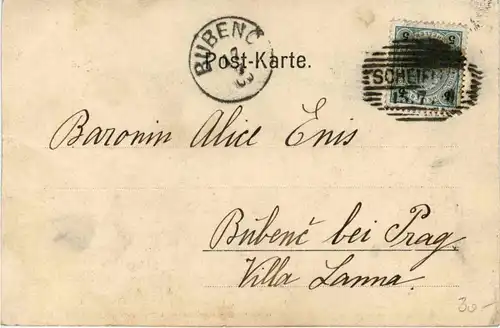 BUBENČ
Post-Karte.
5 5
Baronin Alice Enis
Bubenč bei Prag
Villa Lanna.
30-